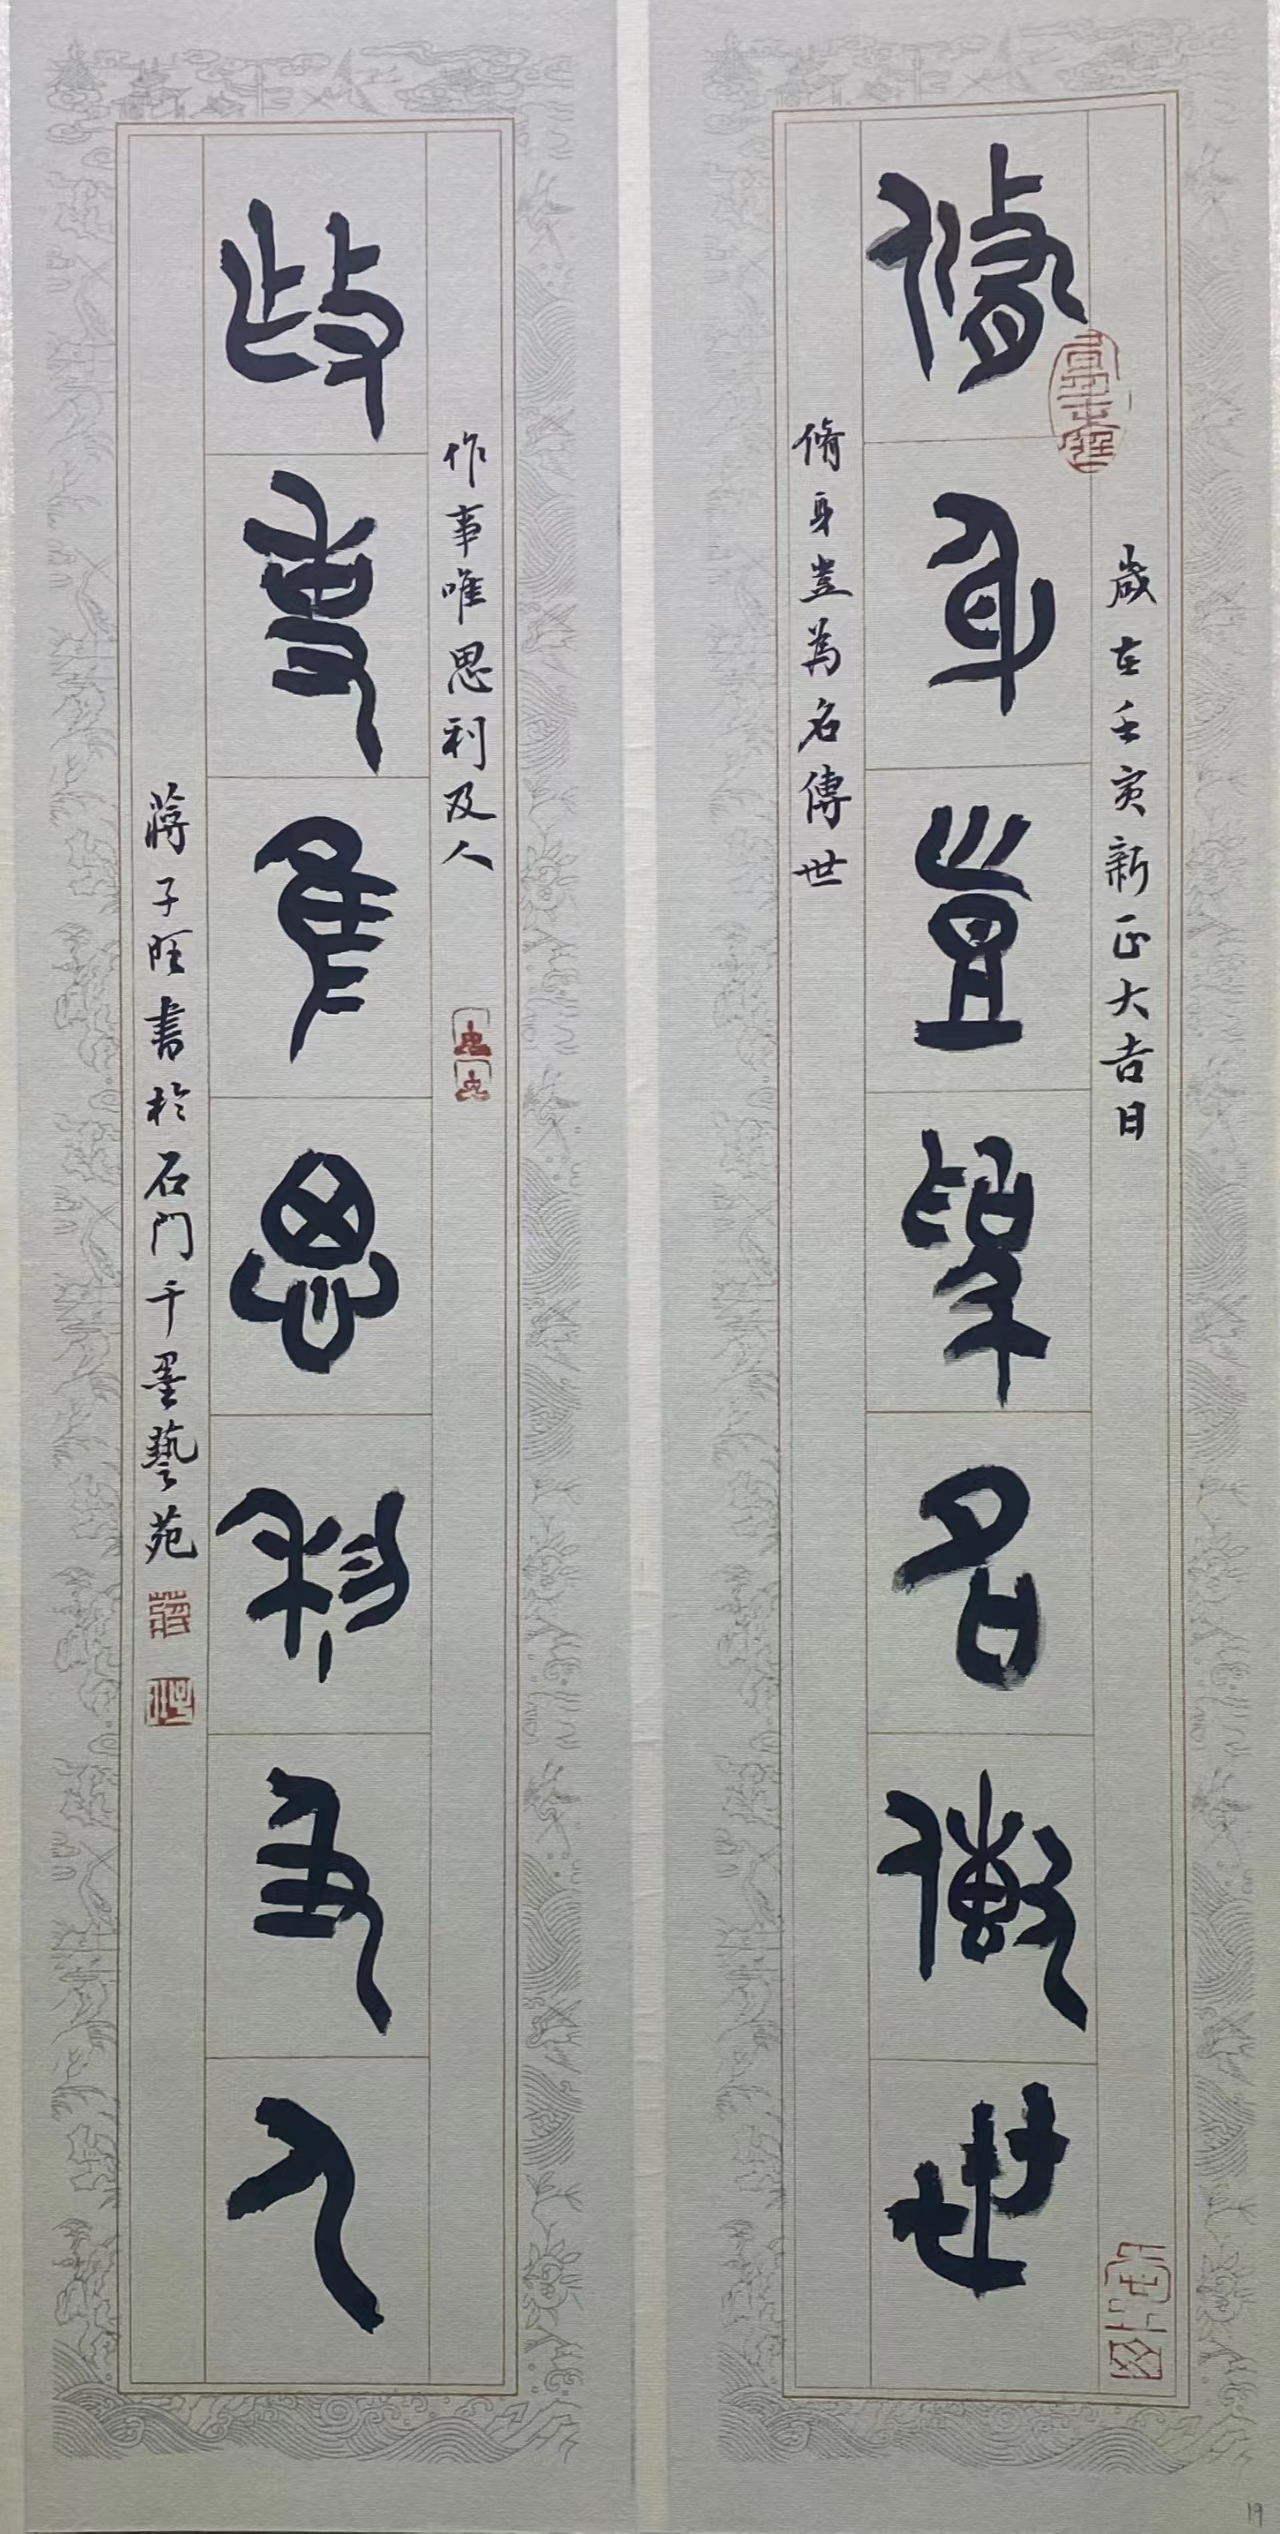 歲在壬寅新正大吉日
脩身豈為名傳世
脩身豈為名傳世
作事唯思利及人
作事唯思利及人
蔣子旺書於石門千墨藝苑
19